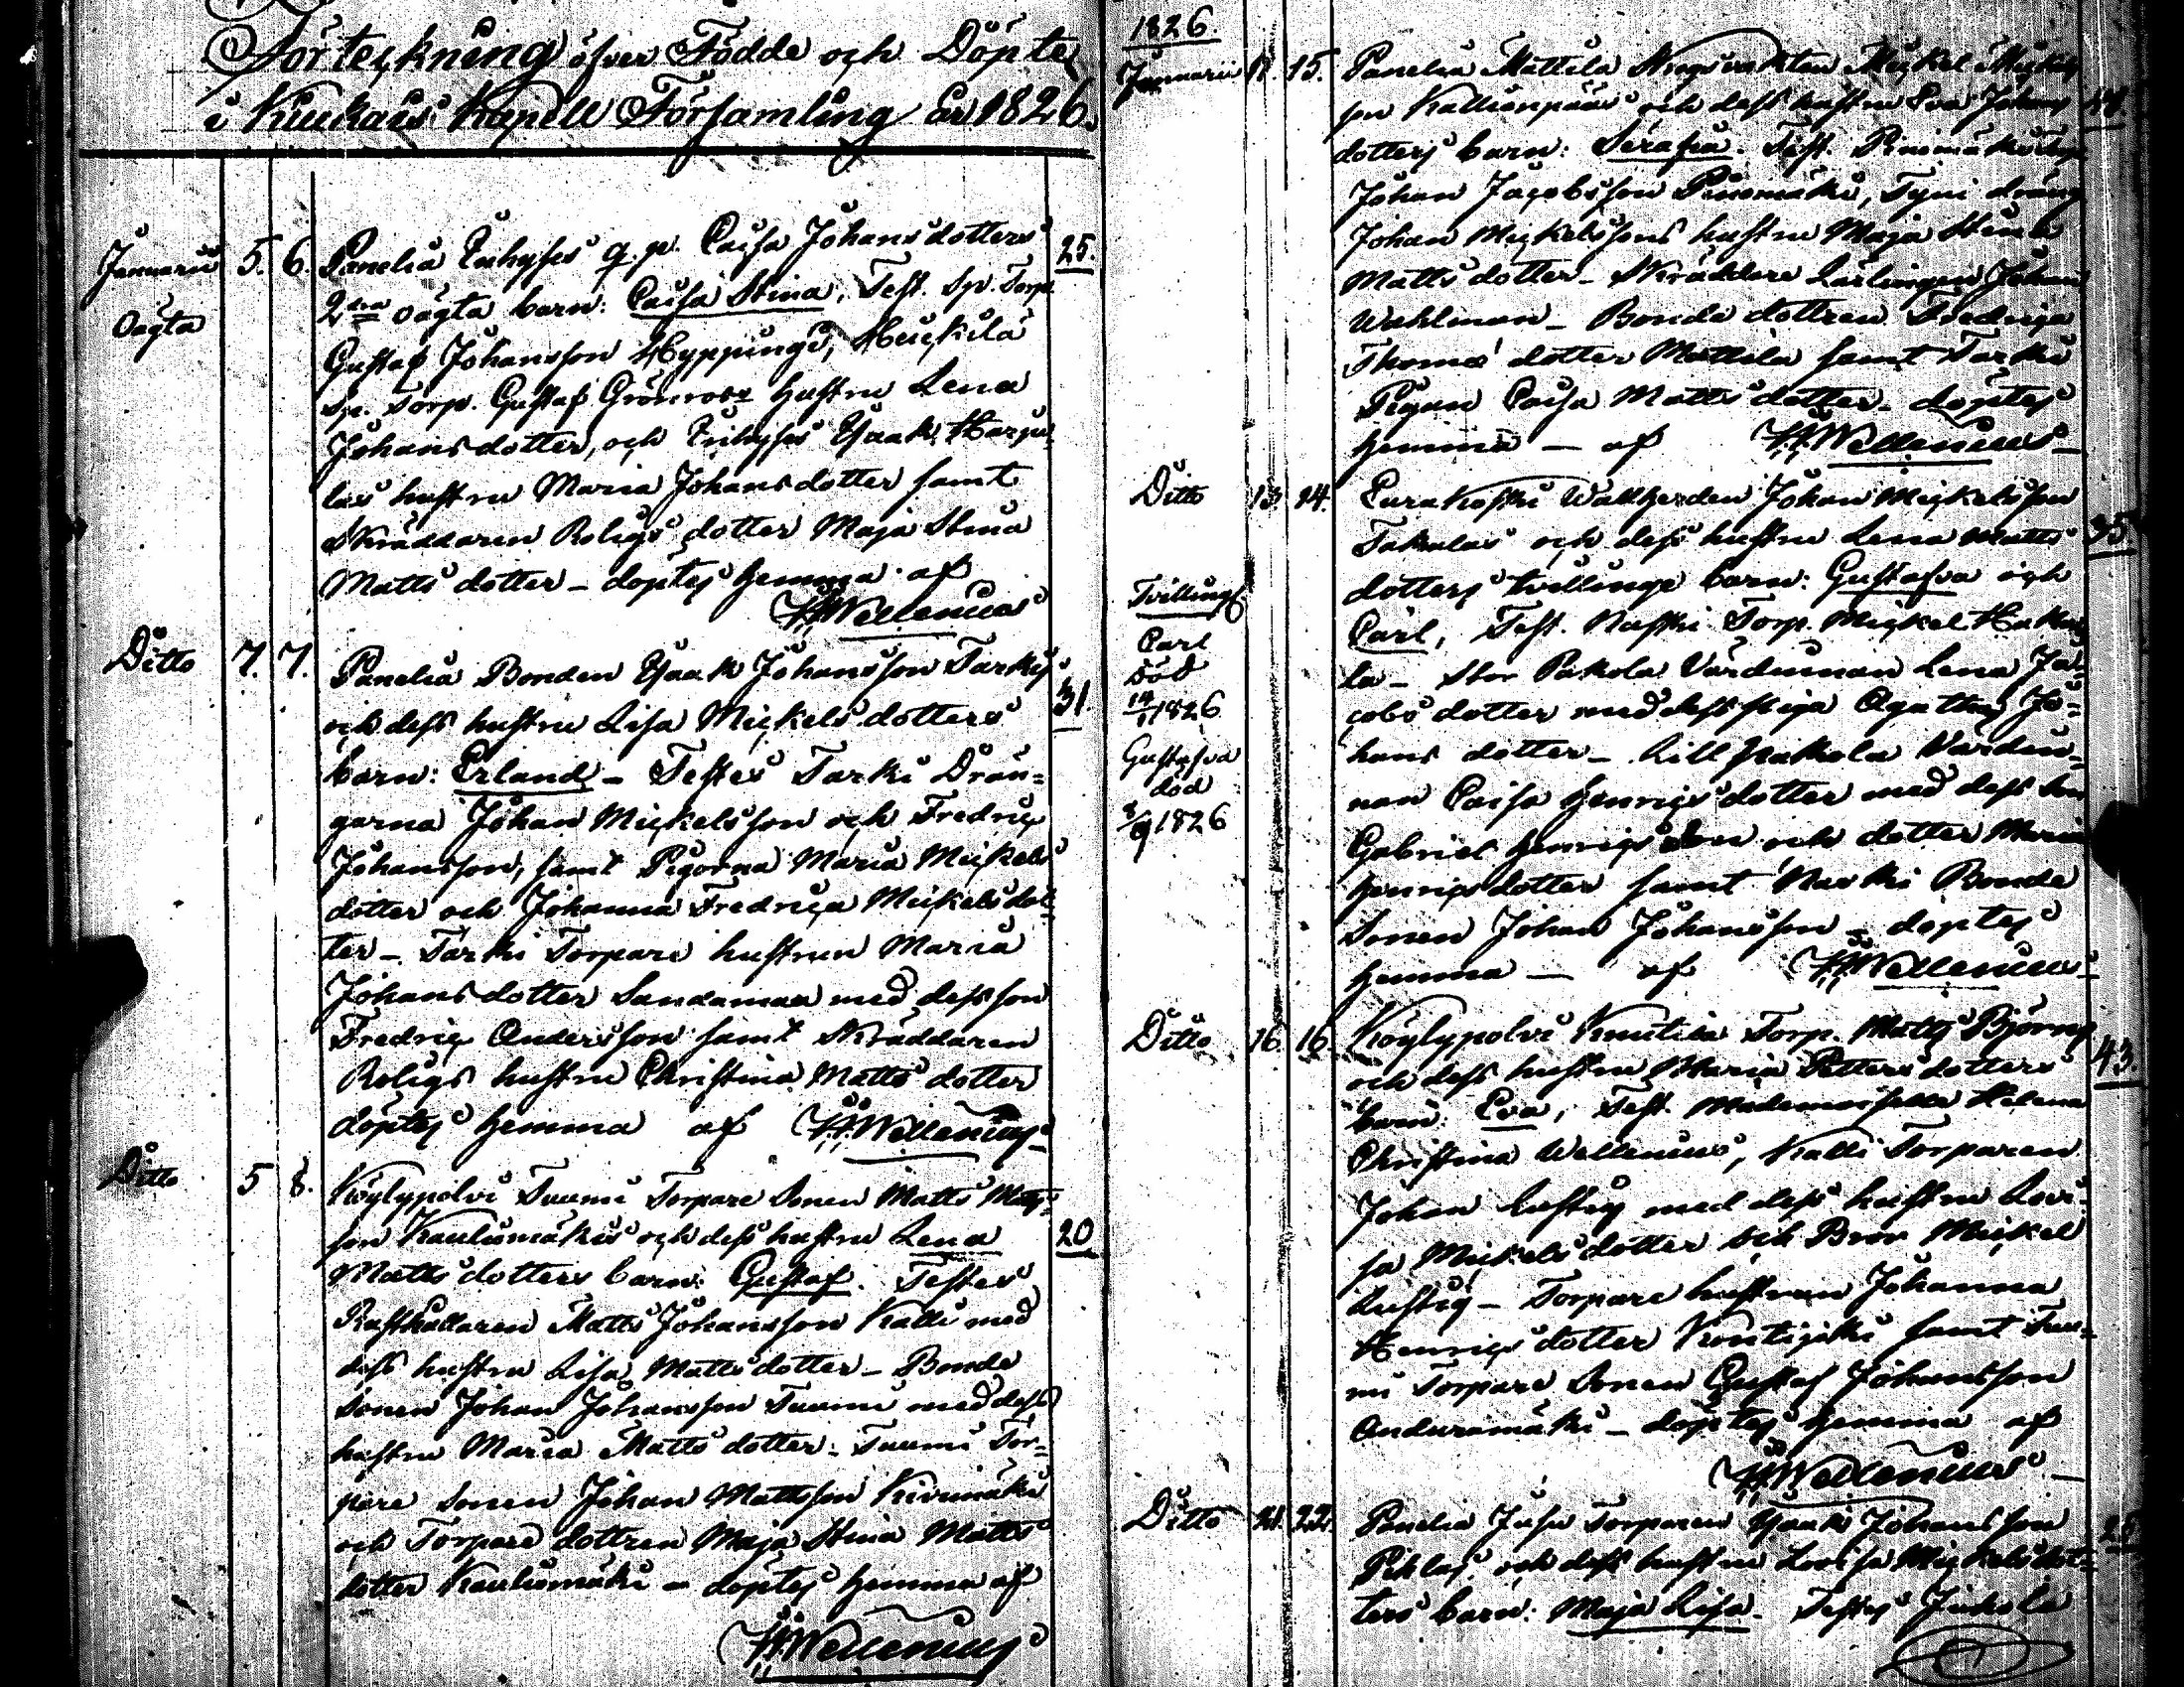 Förteckning öfver Födde och Döpte
i Kiukais Kapell Församling år 1826.
Januarii 5. 6. Panelia q. p. Caisa Johansdotters 25.
Oägta 2dra oägta barn: Caisa Stina, Test. Sp. Torp.
Gustaf Johansson Hyppings,
Sp. Torp. Gustaf Grönroos hustru Lena
Johansdotter, och Ysaak Harju-
las hustru Maria Johansdotter samt
Skräddaren Roligs dotter Maja Stina
Matts dotter - döptes hemma af
HWellenius
Ditto 7. 7. Panelia Bonden Ysaak Johansson Tarkis 31.
och dess hustru Lisa Mickels dotters
barn: Erland - Testes Tarki Drän=
garna Johan Mickelsson och Fredric
Johansson, samt Pigorna Maria Mickels
dotter och Johanna Fredrica Mickelsdot=
ter - Tarki Torpare hustrun Maria
Johansdotter Sandamaa med dess son
Fredric Andersson samt Skräddaren
Roligs hustru Christina Matts dotter
döptes hemma af HWellenius
Ditto 5 8. Köylypolvi Tuumi Torpare Sonen Matts Matts=
son Kaulismäkis och dess hustru Lena 20
Matts dotters barn: Gustaf. Testes
Rusthållaren Matts Johansson Kalli med
dess hustru Lisa Matts dotter - Bonde
Sonen Johan Johansson Tuumi med dess
hustru Maria Matts dotter - Tuumi Tor=
pare sonen Johan Mattsson Kivimäki
och Torpare dottren Maja Stina Matts
dotter Kaulismäki - döptes hemma af
HWellenius
1826.
Januarii 15. Panelia Mattila Mickel
son Kallionpääs och dess hustru Eva Johans
dotters barn: Serafia. Test.
Johan Jacobsson Tyni dräng
Johan Mickelssons hustru Maja Stina
Matts dotter - Skräddare Lärlingen Johan
Wahlman - Bonde dottren Fredrica
Thomas dotter Mattila samt Tarki
Pigan Caisa Matts dotter - döptes
hemma - af HWellenius
Ditto 13. 14. Eurakoski Johan Mickelsson
Takalas och dess hustru Lena Matts 35.
dotters tvillinge barn: Gustafva och
Tvillingt Carl, Test. Naski Torp. Mickel Haka
Carl la - Stor Pakola Värdinnan Lena Ja=
död cobs dotter med dess piga Agatha Jo=
14/1 1826 hans dotter - Lill Pakola Värdin=
Gustafva nan Caisa Henrics dotter med dess Son
död Gabriel Henrics Son och dotter Maria
8/9 1826 Henricsdotter samt Naski Bonde
Sonen Johan Johansson - döptes
hemma - af HWellenius
Ditto 16. 16. Köylypolvi Knutila Torp. Matts Björns
och dess hustru Maria Petters dotters 43.
barn: Eva, Test. Mademoiselle Helena
Christina Wellenius, Kalli Torparen
Johan Lustig med dess hustru Lovi=
sa Mickels dotter och Bror Mickel
Lustig - Torpare hustrun Johanna
Henrics dotter Kontijoki samt Tuu=
mi Torpare Sonen Gustaf Johansson
Anduramäki - döptes hemma af
HWellenius
Ditto 21. 22. Panelia Torparen Ysaak Johansson
och dess hustru Lovisa Mickelsdot= 25
ters barn: Maja Lisa. Testes